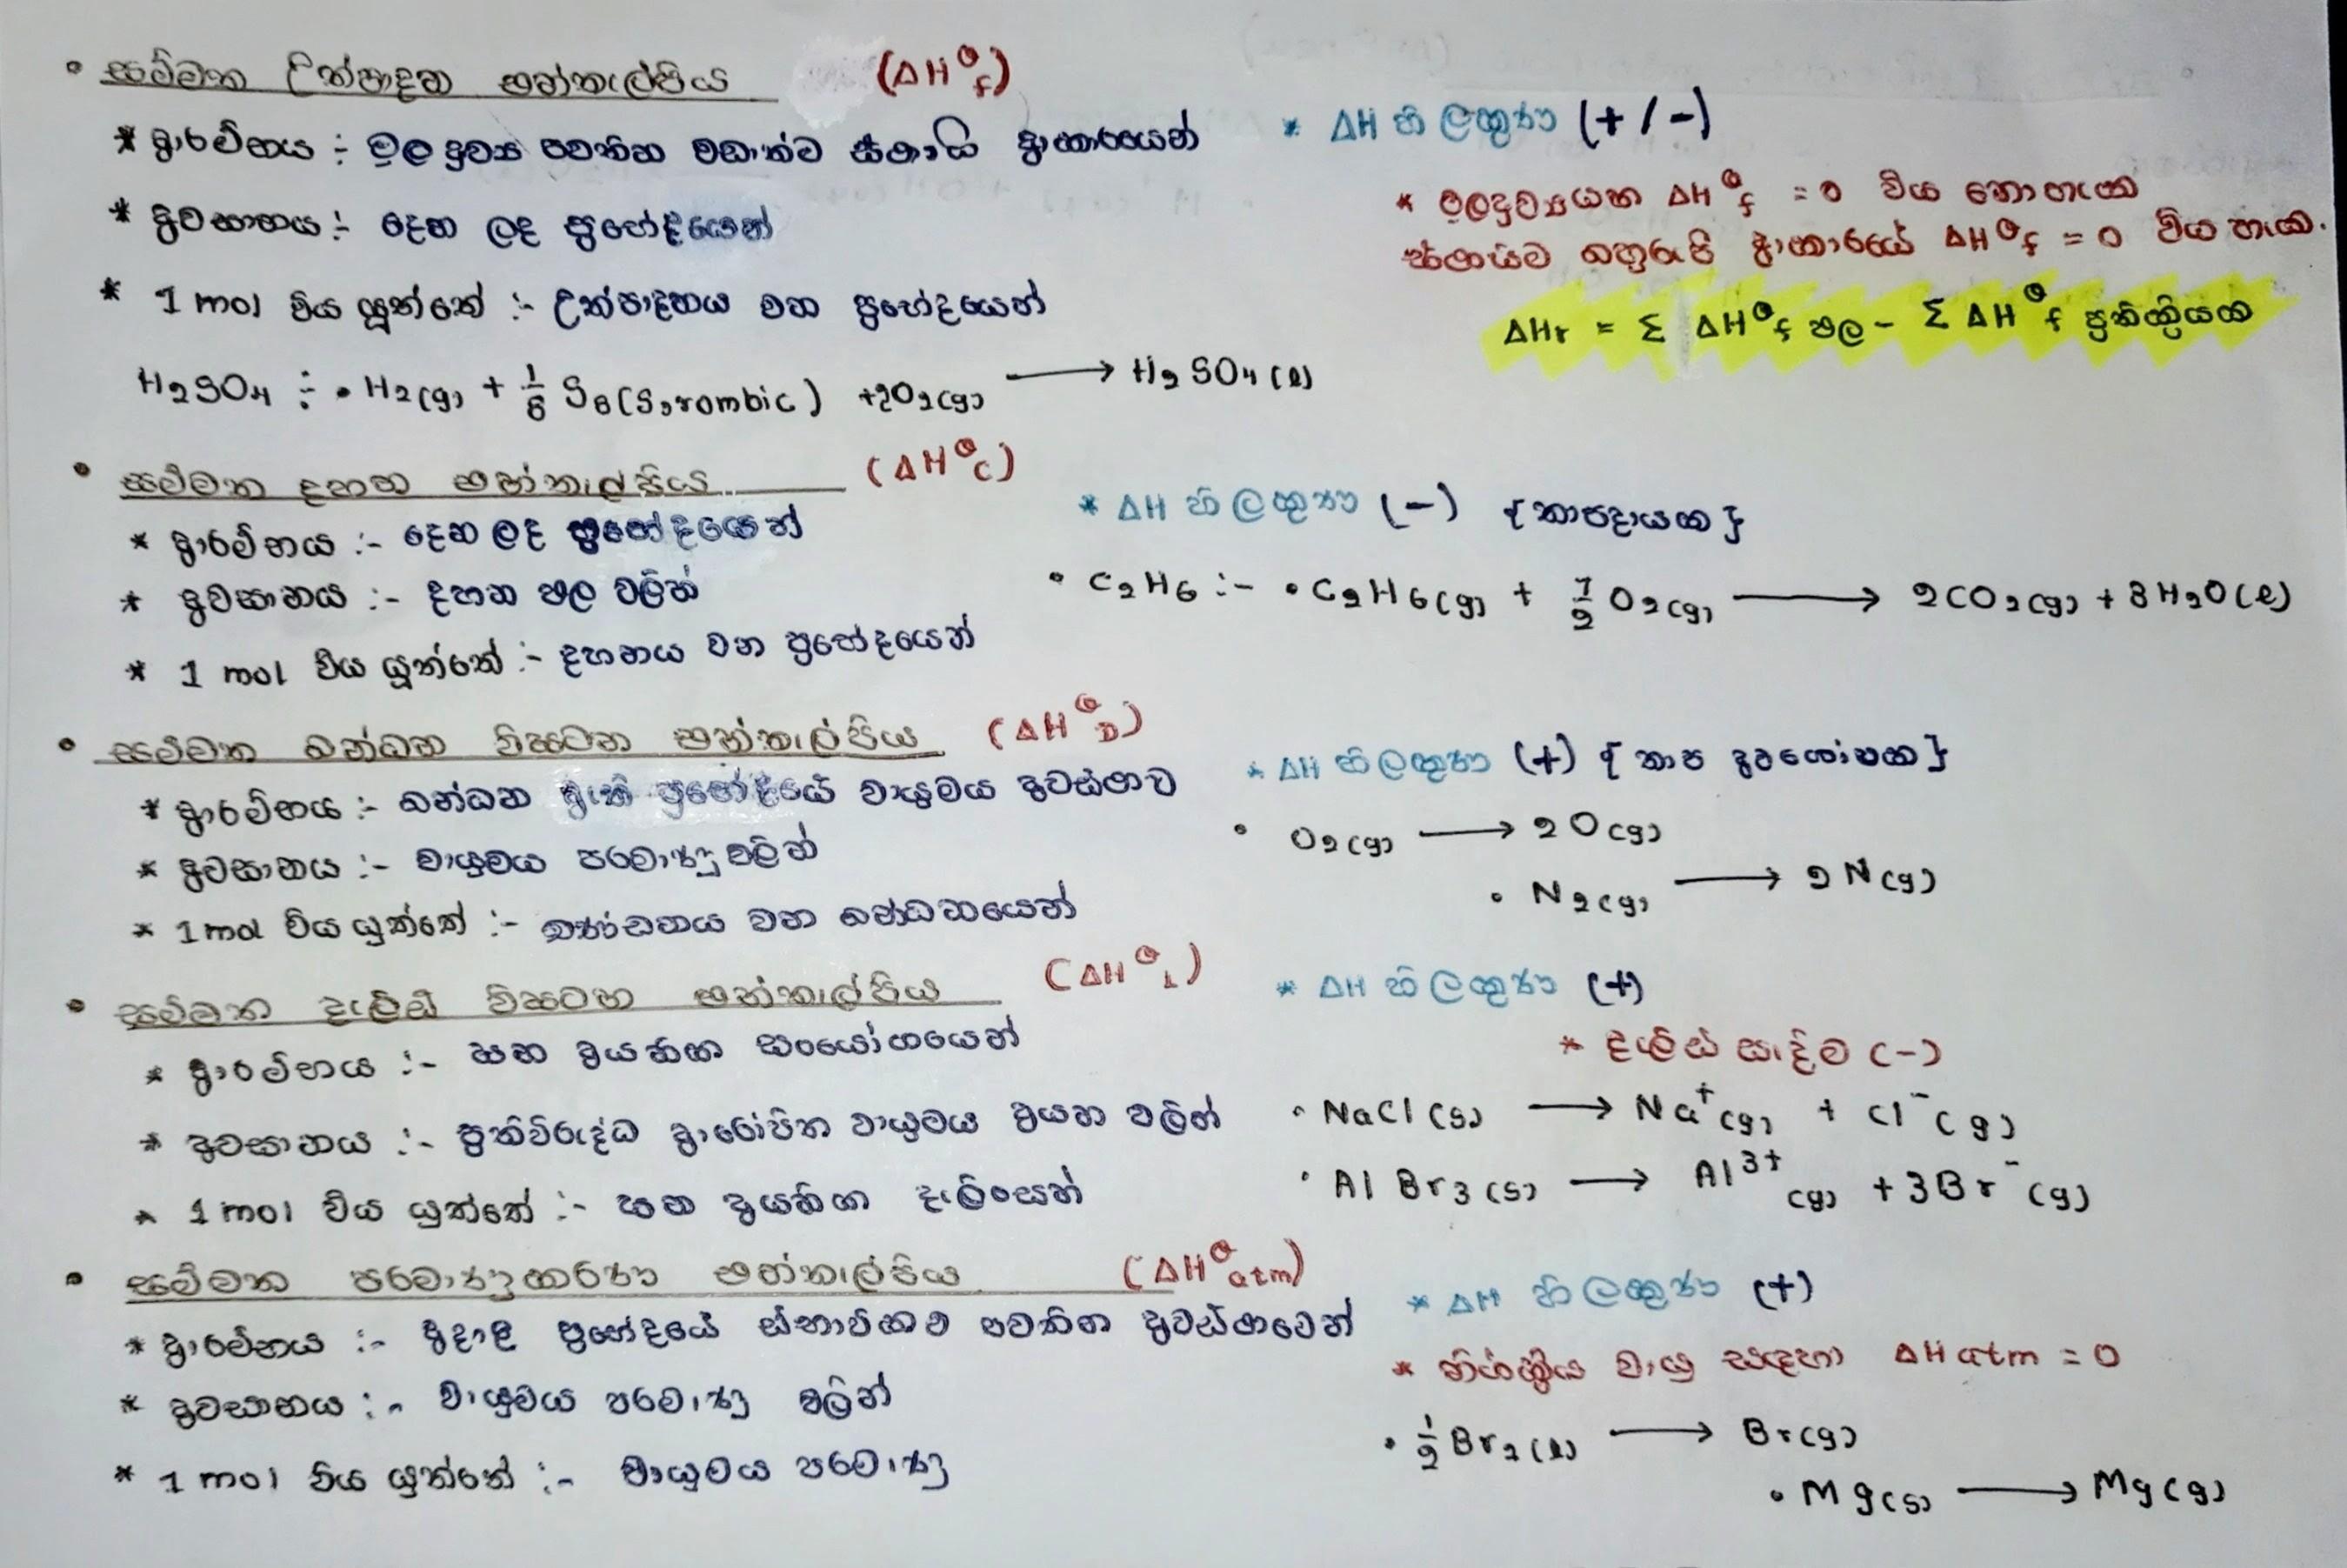 • සම්මත උත්පාදන එන්තැල්පිය (ΔH°f)
* ආරම්භය :- මූල ද්‍රව්‍ය පවතින වඩාත්ම ස්ථායි ආකාරයෙන්
* අවසානය :- දෙන ලද ප්‍රභේදයෙන්
* 1 mol විය යුත්තේ :- උත්පාදනය වන ප්‍රභේදයෙන්
H₂SO₄ :- • H₂(g) + 1/8 S₈(S,rombic) + 2O₂(g) ⟶ H₂SO₄(l)
* ΔH හි ලකුණ (+/-)
* මූලද්‍රව්‍යයක ΔH°f = 0 විය නොහැක
ස්ථායීම බහුරූපී ආකාරයේ ΔH°f = 0 විය හැක.
ΔHr = Σ ΔH°f ඵල - Σ ΔH°f ප්‍රතික්‍රියක
• සම්මත දහන එන්තැල්පිය (ΔH°c)
* ආරම්භය :- දෙන ලද ප්‍රභේදයෙන්
* අවසානය :- දහන ඵල වලින්
* 1 mol විය යුත්තේ :- දහනය වන ප්‍රභේදයෙන්
* ΔH හි ලකුණ (-) {තාපදායක}
• C₂H₆ :- • C₂H₆(g) + 7/2 O₂(g) ⟶ 2CO₂(g) + 3H₂O(l)
• සම්මත බන්ධන විඝටන එන්තැල්පිය (ΔH°D)
* ආරම්භය :- බන්ධන ඇති ප්‍රභේදයේ වායුමය අවස්ථාව
* අවසානය :- වායුමය පරමාණු වලින්
* 1 mol විය යුත්තේ :- ඛණ්ඩනය වන බන්ධනයෙන්
* ΔH හි ලකුණ (+) {තාප අවශෝෂක}
• O₂(g) ⟶ 2O(g)
• N₂(g) ⟶ 2N(g)
• සම්මත දැලිස් විඝටන එන්තැල්පිය (ΔH°L)
* ආරම්භය :- ඝන අයනික සංයෝගයෙන්
* අවසානය :- ප්‍රතිවිරුද්ධ ආරෝපිත වායුමය අයන වලින්
* 1 mol විය යුත්තේ :- ඝන අයනික දැලිසෙන්
* ΔH හි ලකුණ (+)
* දැලිස් සෑදීම (-)
• NaCl(s) ⟶ Na⁺(g) + Cl⁻(g)
• AlBr₃(s) ⟶ Al³⁺(g) + 3Br⁻(g)
• සම්මත පරමාණුකරණ එන්තැල්පිය (ΔH°atm)
* ආරම්භය :- අදාළ ප්‍රභේදයේ ස්භාවිකව පවතින අවස්ථාවෙන්
* අවසානය :- වායුමය පරමාණු වලින්
* 1 mol විය යුත්තේ :- වායුමය පරමාණු
* ΔH හි ලකුණ (+)
* නිශ්ක්‍රීය වායු සඳහා ΔHatm = 0
• 1/2 Br₂(l) ⟶ Br(g)
• Mg(s) ⟶ Mg(g)